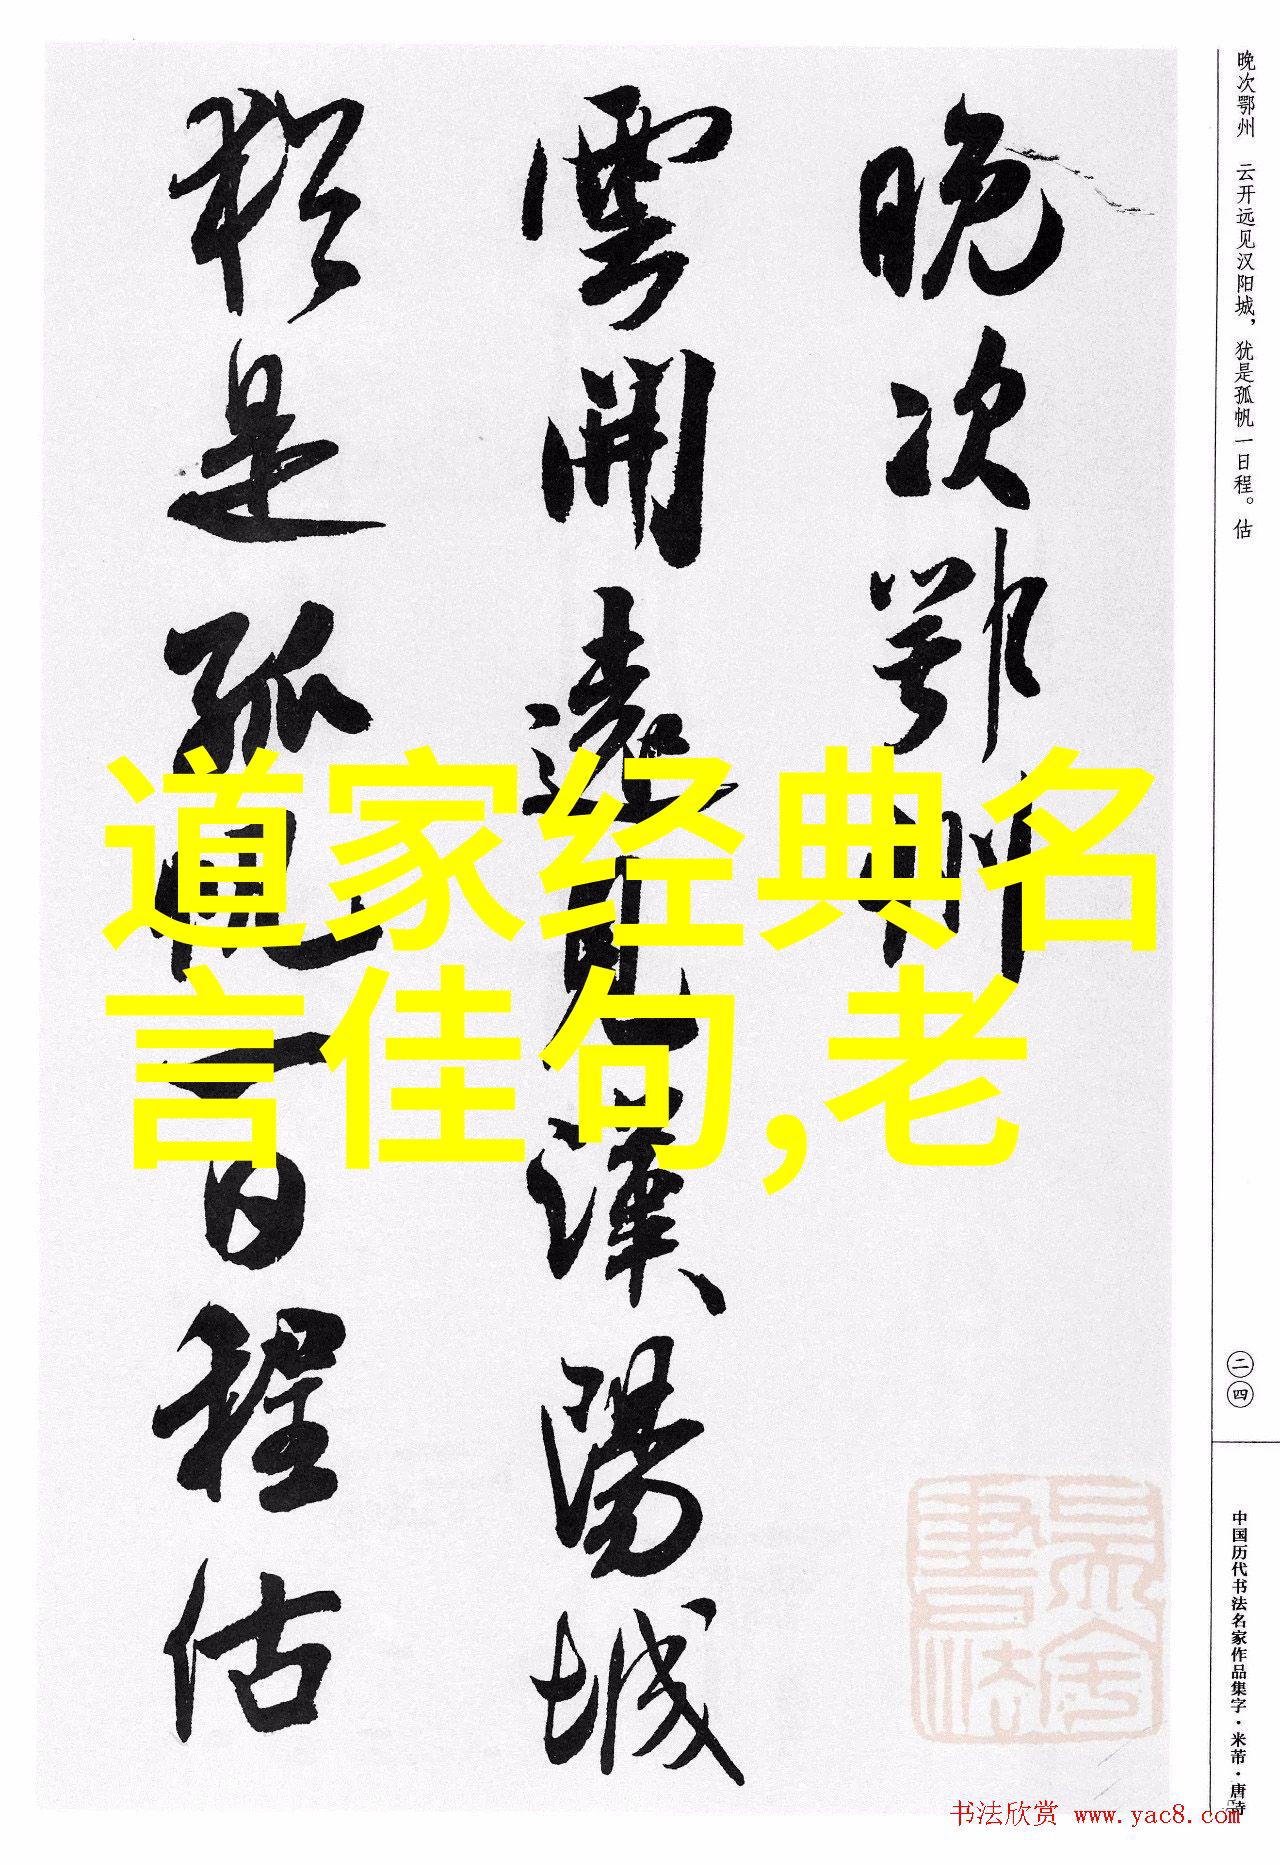 晚次鄂州
雲開遠見漢陽城
猶是孤帆一日程估
道家经典名
言佳句,老
晚次鄂州 云开远见汉阳城，犹是孤帆一日程。估
二四
中国历代书法名家作品集字·米芾·唐诗
书法欣赏 www.yac8.com